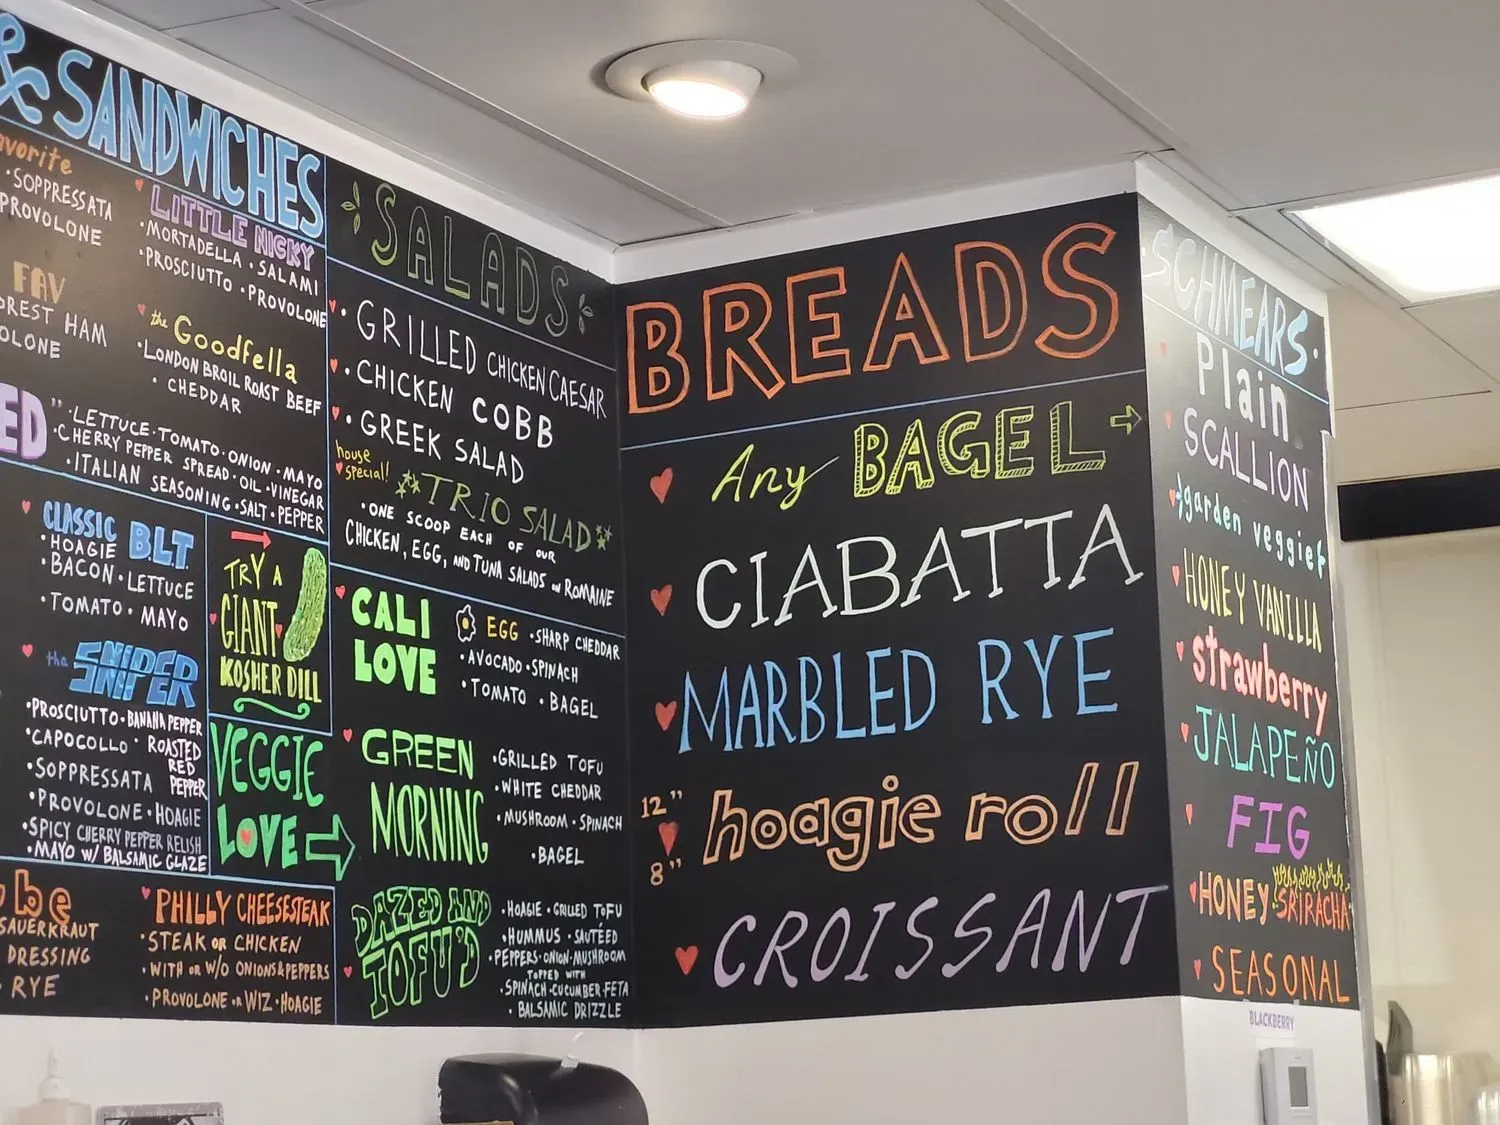 & SANDWICHES
avorite
• SOPPRESSATA
PROVOLONE
FAV
OREST HAM
OLONE
LITTLE NICKY
• MORTADELLA • SALAMI
• PROSCIUTTO • PROVOLONE
the Goodfella
• LONDON BROIL ROAST BEEF
• CHEDDAR
ED" • LETTUCE • TOMATO • ONION • MAYO
• CHERRY PEPPER SPREAD • OIL • VINEGAR
• ITALIAN SEASONING • SALT • PEPPER
CLASSIC BLT
• HOAGIE
• BACON • LETTUCE
• TOMATO • MAYO
the SNIPER
• PROSCIUTTO • BANANA PEPPER
• CAPOCOLLO • ROASTED
RED
PEPPER
• SOPPRESSATA
• PROVOLONE • HOAGIE
• SPICY CHERRY PEPPER RELISH
• MAYO W/ BALSAMIC GLAZE
TRY A
GIANT
KOSHER DILL
VEGGIE
LOVE
be
SAUERKRAUT
DRESSING
RYE
PHILLY CHEESESTEAK
• STEAK OR CHICKEN
• WITH OR W/O ONIONS & PEPPERS
• PROVOLONE OR WIZ • HOAGIE
SALADS
• GRILLED CHICKEN CAESAR
• CHICKEN COBB
• GREEK SALAD
house
special!
TRIO SALAD
• ONE SCOOP EACH OF OUR
CHICKEN, EGG, AND TUNA SALADS ON ROMAINE
CALI
LOVE
EGG • SHARP CHEDDAR
• AVOCADO • SPINACH
• TOMATO • BAGEL
GREEN
MORNING
• GRILLED TOFU
• WHITE CHEDDAR
• MUSHROOM • SPINACH
• BAGEL
DAZED AND
TOFU'D
• HOAGIE • GRILLED TOFU
• HUMMUS • SAUTÉED
• PEPPERS • ONION • MUSHROOM
TOPPED WITH
• SPINACH • CUCUMBER • FETA
• BALSAMIC DRIZZLE
BREADS
Any BAGEL
CIABATTA
MARBLED RYE
12"
8"
hoagie roll
CROISSANT
• SCHMEARS •
Plain
SCALLION
garden veggie
HONEY VANILLA
strawberry
JALAPEÑO
FIG
HONEY SRIRACHA
SEASONAL
BLACKBERRY